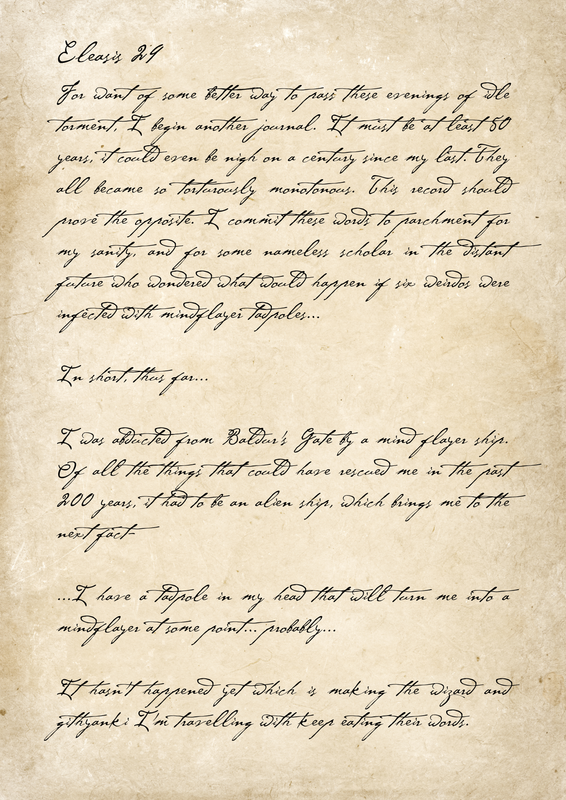 Eleasis 29
For want of some better way to pass these evenings of idle
torment, I begin another journal. It must be at least 50
years, it could even be nigh on a century since my last. They
all became so torturously monotonous. This record should
prove the opposite. I commit these words to parchment for
my sanity, and for some nameless scholar in the distant
future who wondered what would happen if six weirdos were
infected with mindflayer tadpoles...
In short, thus far...
I was abducted from Baldur's Gate by a mind flayer ship.
Of all the things that could have rescued me in the past
200 years, it had to be an alien ship, which brings me to the
next fact-
...I have a tadpole in my head that will turn me into a
mindflayer at some point... probably...
It hasn't happened yet which is making the wizard and
githyanki I'm travelling with keep eating their words.